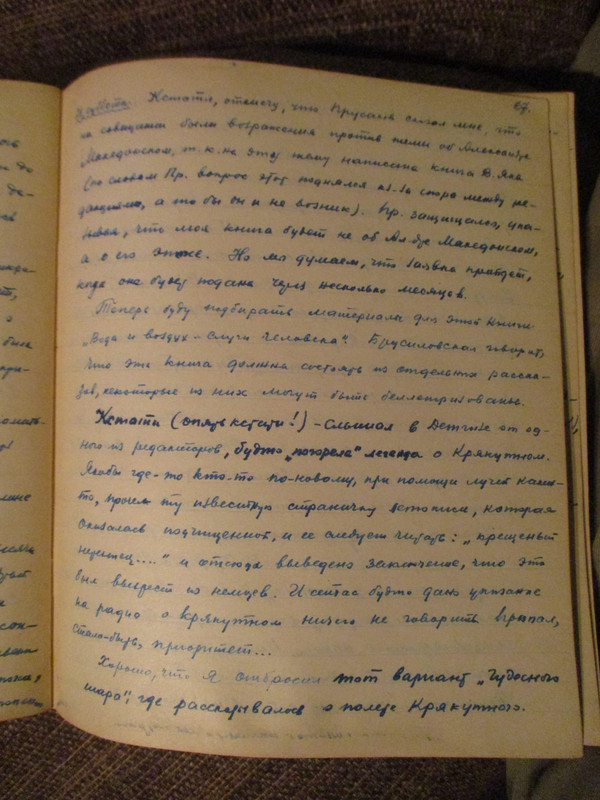 67.
Суббота. Кстати, отмечу, что Прусаков сказал мне, что
на совещании были возражения против темы об Александре
Македонском, т.к. на эту тему написана книга В. Яна
(по словам Пр. вопрос этот поднялся из-за спора между ре-
дакциями, а то бы он и не возник). Пр. защищался, ука-
зывая, что моя книга будет не об Ал-дре Македонском,
а о его эпохе. Но мы думаем, что заявка пройдет,
когда она будет подана через несколько месяцев.
Теперь буду подбирать материалы для этой книги
„Вода и воздух – слуги человека". Брусиловская говорит,
что эта книга должна состоять из отдельных расска-
зов, некоторые из них могут быть беллетризованы.
Кстати (опять кстати!) – слышал в Детгизе от од-
ного из редакторов, будто „погорела" легенда о Крякутном.
Якобы где-то кто-то по-новому, при помощи лучей каких-
то, прочел ту известную страничку летописи, которая
оказалась подчищенной, и ее следует читать: „крещеный
немец...." и отсюда выведено заключение, что это
был выкрест из немцев. И сейчас будто дано указание
на радио о Крякутном ничего не говорить
стало-быть, приоритет...
Хорошо, что я отбросил тот вариант „Чудесного
шара", где рассказывалось о полете Крякутного.